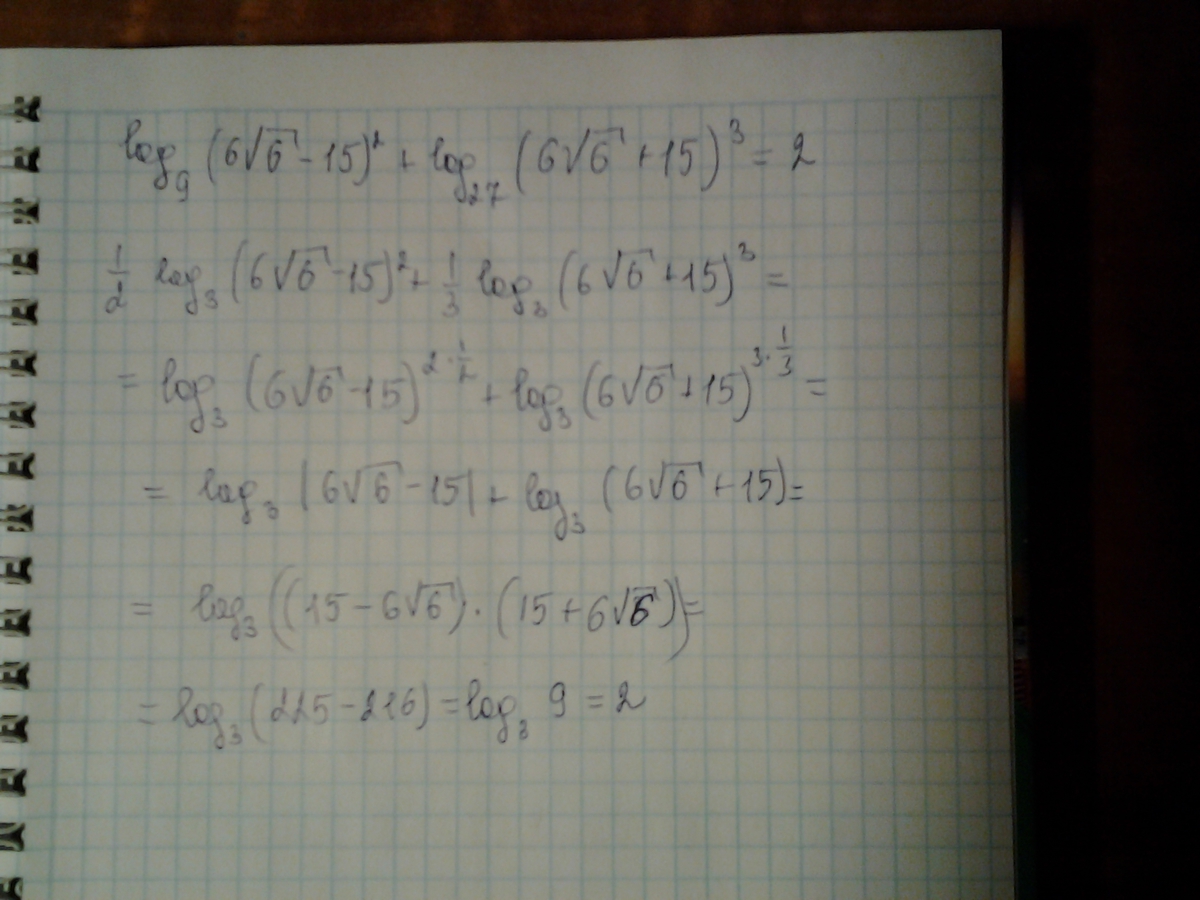 log₉ (6√6 - 15)² + log₂₇ (6√6 + 15)³ = 2
1/2 log₃ (6√6 - 15)² + 1/3 log₃ (6√6 + 15)³ =
= log₃ (6√6 - 15)^(2·1/2) + log₃ (6√6 + 15)^(3·1/3) =
= log₃ |6√6 - 15| + log₃ (6√6 + 15) =
= log₃ ((15 - 6√6) · (15 + 6√6)) =
= log₃ (225 - 216) = log₃ 9 = 2